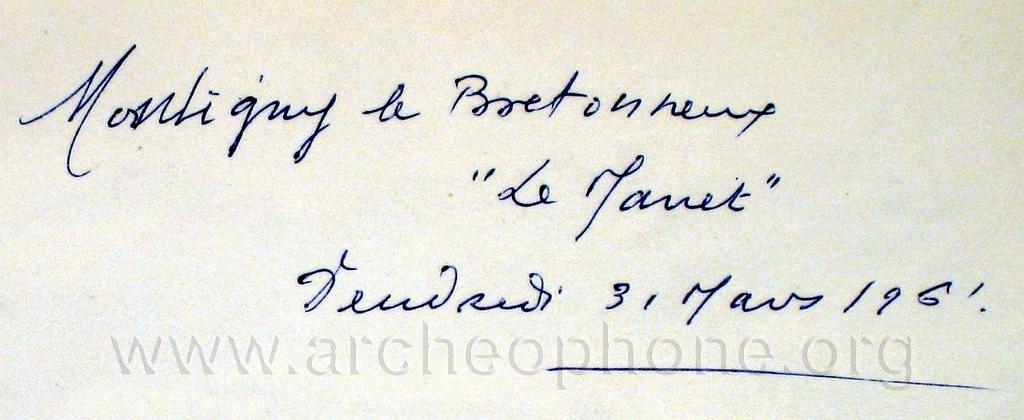 Montigny le Bretonneux
"Le Manet"
Vendredi 31 Mars 1961.
www.archeophone.org